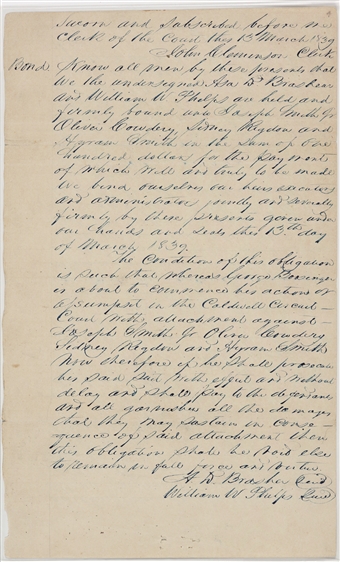 Sworn and subscribed before me
Clerk of the Court this 13 March 1839
John Cleminson Clerk
Bond Know all men by these presents that
we the undersigned Asa D Brashear
and William W Phelps are held and
firmly bound unto Joseph Smith Jr
Oliver Cowdery, Sidney Rigdon and
Hyram Smith in the Sum of One
hundred dollars for the payment
of which well and truly to be made
we bind ourselves our heirs executors
and administrators jointly and severally
firmly by these presents given under
our hands and seals this 13th day
of March 1839
The Condition of this obligation
is such that whereas George
is about to commence his action of
assumpsit in the Caldwell Circuit
Court with attachment against
Joseph Smith Jr Oliver Cowdery
Sidney Rigdon and Hyram Smith
Now therefore if he shall prosecute
his said suit with effect and without
delay and shall pay to the defendants
and all garnishees all the damages
that they may sustain in conse-
quence of said attachment then
this obligation shall be void else
to remain in full force and virtue
A D Brasher Seal
William W Phelps Seal